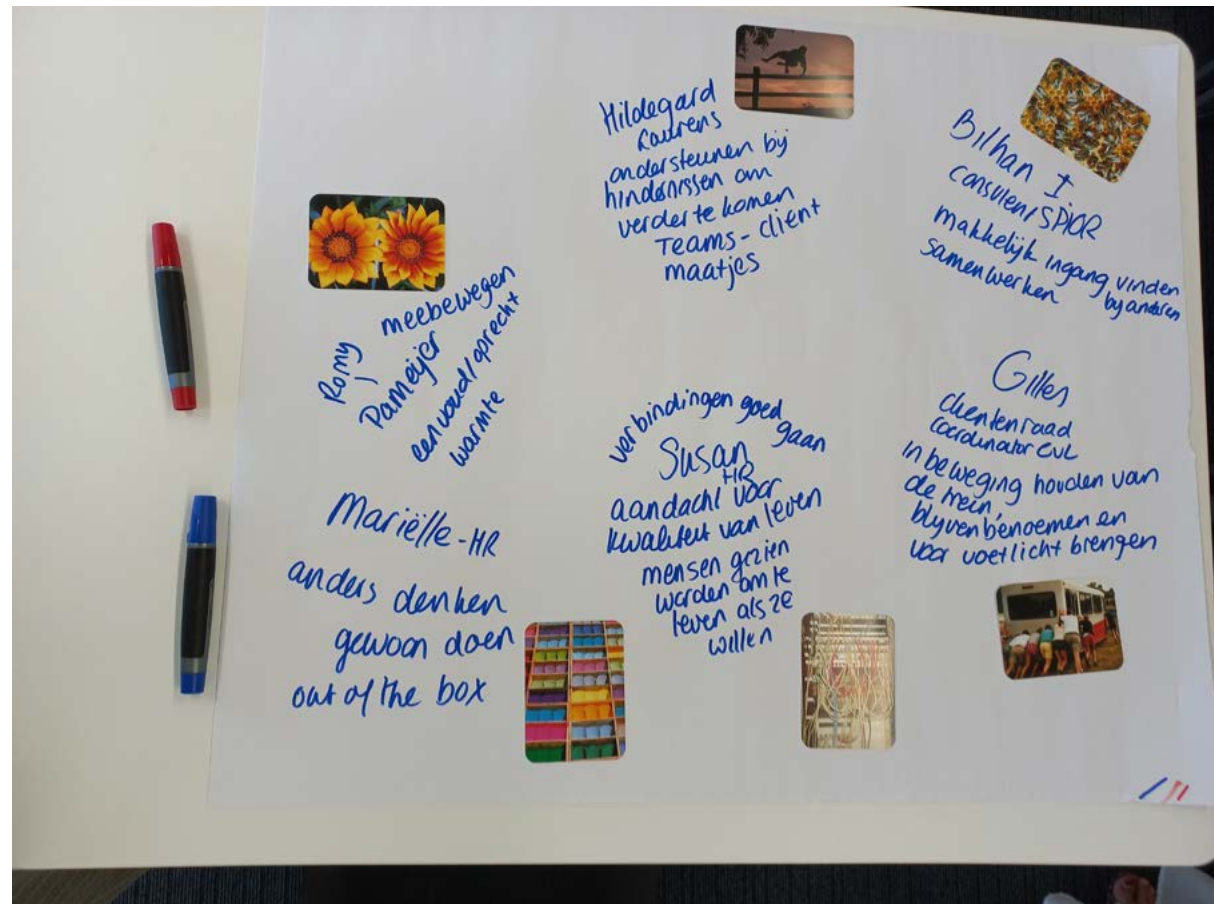 Hildegard
Laurens
ondersteunen bij
hindernissen om
verder te komen
Teams - client
maatjes
Bilhan I
consulent SPIOR
makkelijk ingang vinden
by anderen
samenwerken
meebewegen
Romy /
Pameijer
eenvoud / oprecht
warmte
verbindingen goed
gaan
Susan
HR
aandacht voor
kwaliteit van leven
mensen gezien
worden om te
leven als ze
willen
Gilles
clientenraad
coordinator CVL
in beweging houden van
de trein,
blyven benoemen en
voor voetlicht brengen
Mariëlle - HR
anders denken
gewoon doen
out of the box